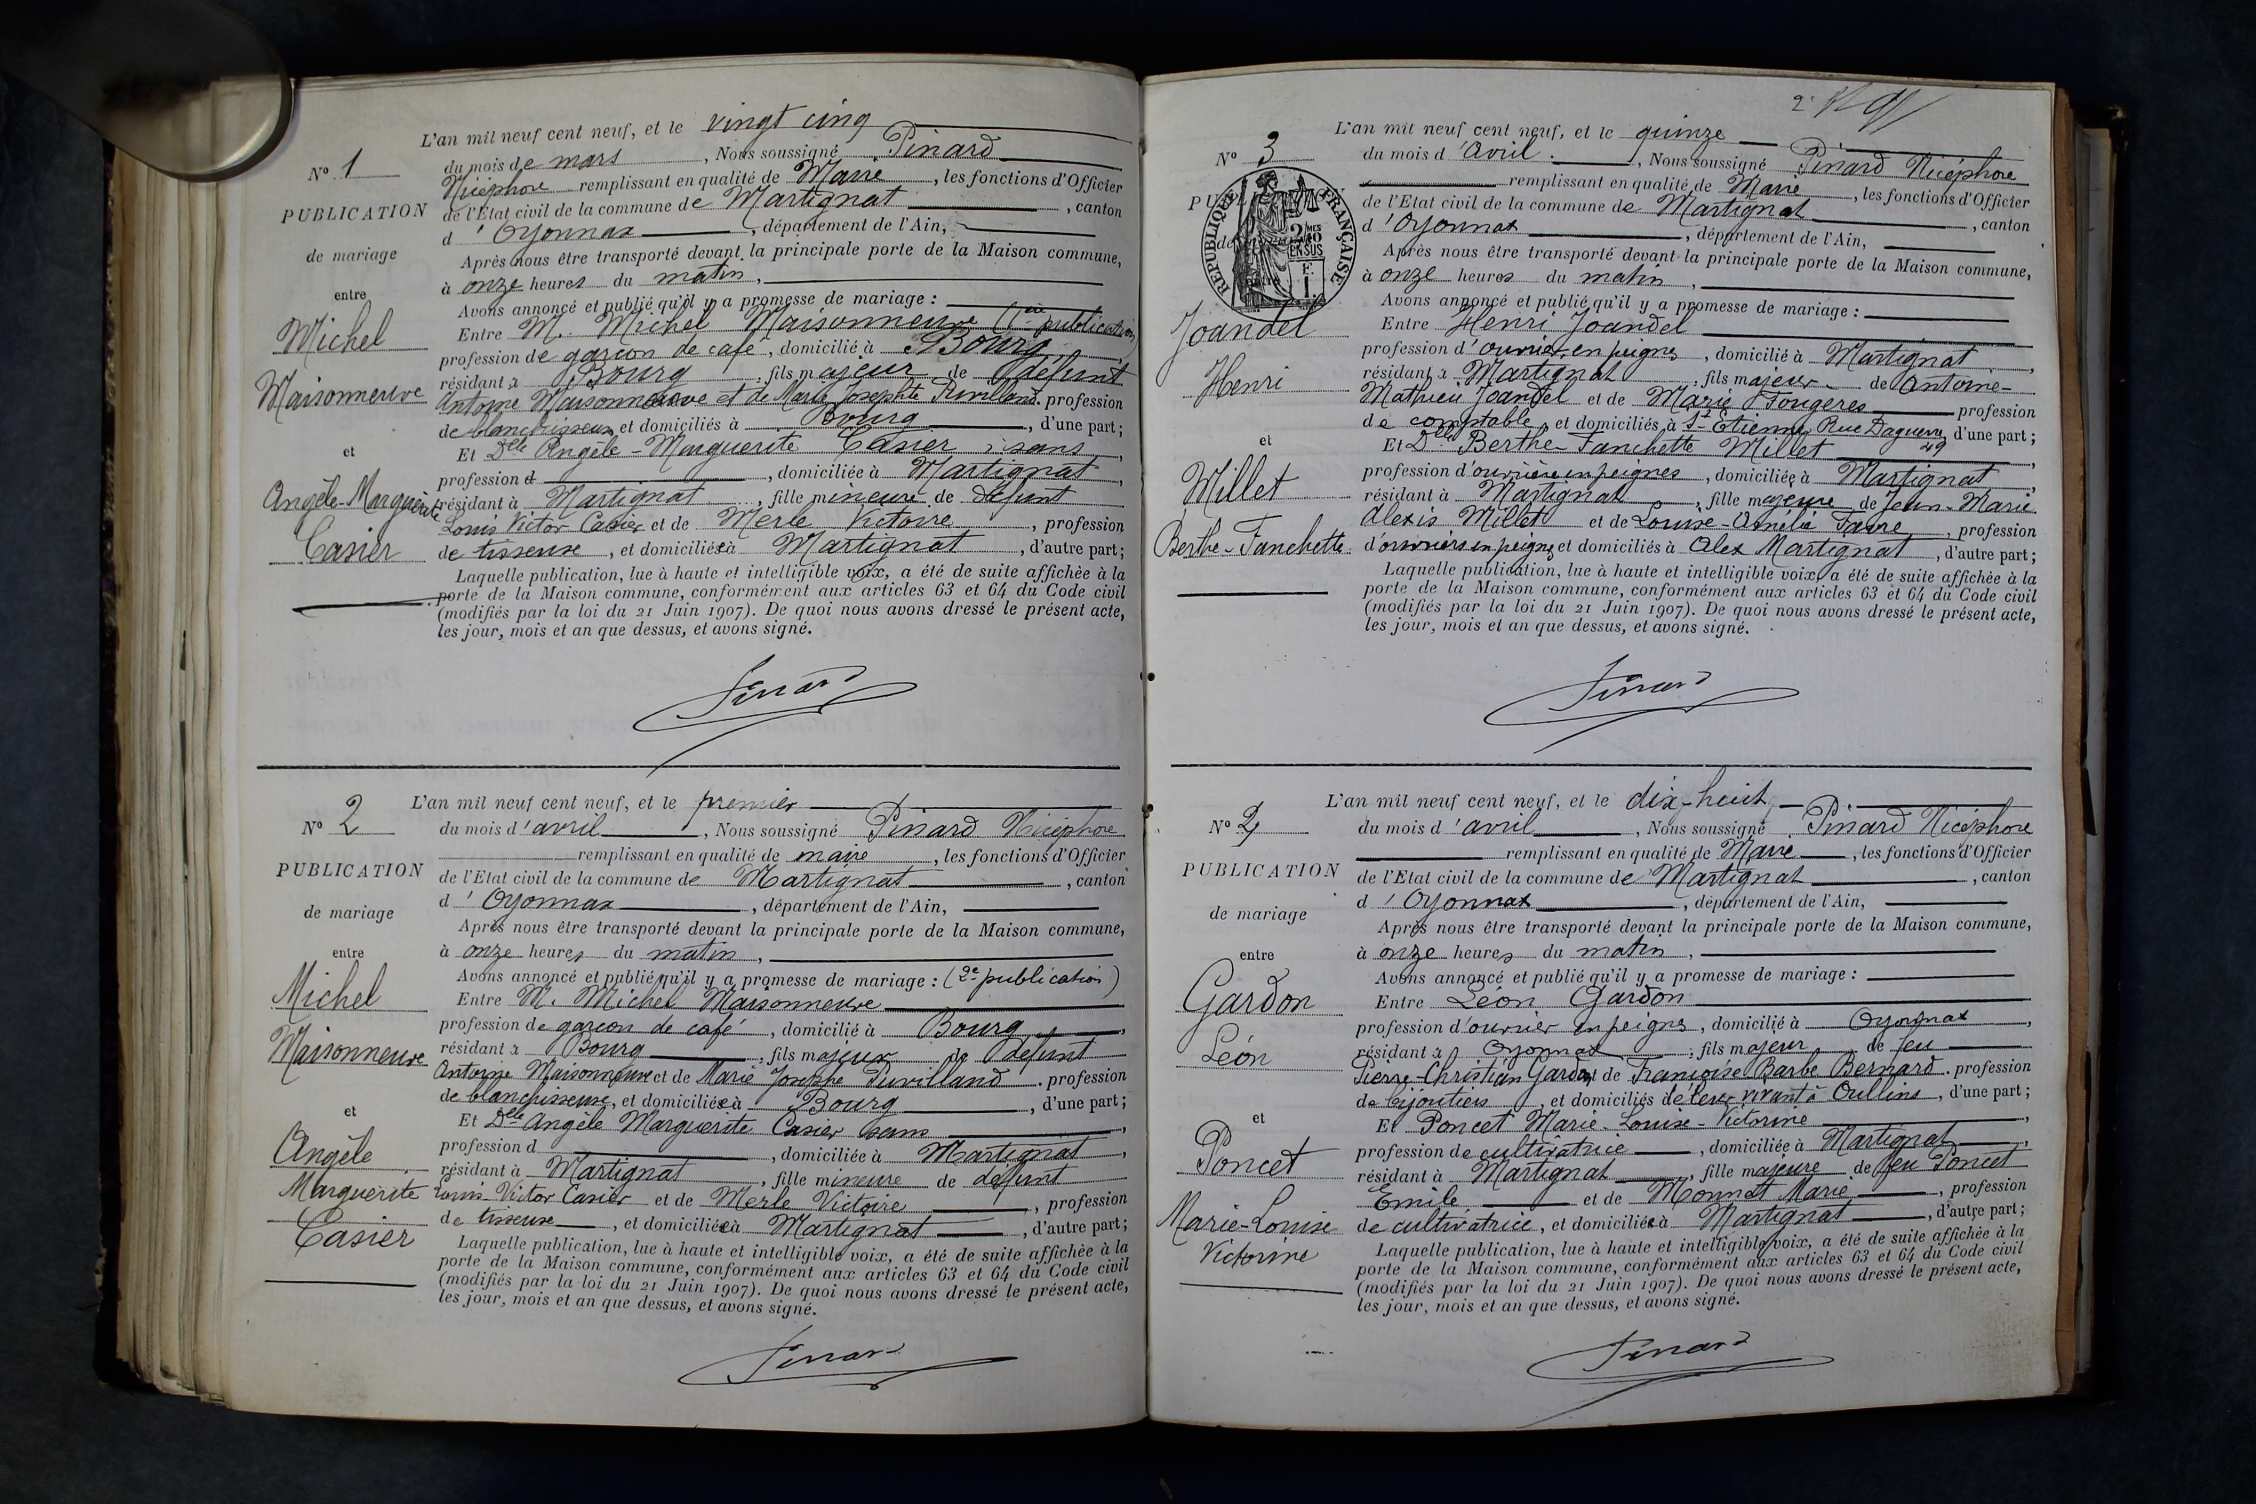 L'an mil neuf cent neuf, et le vingt cinq
N° 1
du mois de mars, Nous soussigné Pinard
Nicéphore remplissant en qualité de Maire, les fonctions d'Officier
PUBLICATION
de l'Etat civil de la commune de Martignat, canton
d'Oyonnax, département de l'Ain,
de mariage
Après nous être transporté devant la principale porte de la Maison commune,
à onze heures du matin,
entre
Avons annoncé et publié qu'il y a promesse de mariage :
Michel
Entre M. Michel Maisonneuve (1ère publication)
profession de garçon de café, domicilié à Bourg,
résidant à Bourg, fils majeur de défunt
Maisonneuve
Antoine Maisonneuve et de Marie Josephte Puvilland, profession
de blanchisseuse, et domiciliés à Bourg, d'une part;
et
Et Delle Angèle-Marguerite Casier, sans,
profession d, domiciliée à Martignat,
Angèle-Marguerite
résidant à Martignat, fille mineure de défunt
Louis Victor Casier et de Merle Victoire, profession
Casier
de tisseuse, et domiciliée à Martignat, d'autre part;
Laquelle publication, lue à haute et intelligible voix, a été de suite affichée à la
porte de la Maison commune, conformément aux articles 63 et 64 du Code civil
(modifiés par la loi du 21 Juin 1907). De quoi nous avons dressé le présent acte,
les jour, mois et an que dessus, et avons signé.
Pinard
L'an mil neuf cent neuf, et le premier
N° 2
du mois d'avril, Nous soussigné Pinard Nicéphore
remplissant en qualité de maire, les fonctions d'Officier
PUBLICATION
de l'Etat civil de la commune de Martignat, canton
d'Oyonnax, département de l'Ain,
de mariage
Après nous être transporté devant la principale porte de la Maison commune,
à onze heures du matin,
entre
Avons annoncé et publié qu'il y a promesse de mariage : (2e publication)
Michel
Entre M. Michel Maisonneuve
profession de garçon de café, domicilié à Bourg,
Maisonneuve
résidant à Bourg, fils majeur de défunt
Antoine Maisonneuve et de Marie Josephe Puvilland, profession
de blanchisseuse, et domiciliée à Bourg, d'une part;
et
Et Delle Angèle Marguerite Casier sans,
Angèle
profession d, domiciliée à Martignat,
résidant à Martignat, fille mineure de défunt
Marguerite
Louis Victor Casier et de Merle Victoire, profession
de tisseuse, et domiciliée à Martignat, d'autre part;
Casier
Laquelle publication, lue à haute et intelligible voix, a été de suite affichée à la
porte de la Maison commune, conformément aux articles 63 et 64 du Code civil
(modifiés par la loi du 21 Juin 1907). De quoi nous avons dressé le présent acte,
les jour, mois et an que dessus, et avons signé.
Pinard
2e
L'an mil neuf cent neuf, et le quinze
N° 3
du mois d'avril, Nous soussigné Pinard Nicéphore
remplissant en qualité de Maire, les fonctions d'Officier
de l'Etat civil de la commune de Martignat, canton
d'Oyonnax, département de l'Ain,
RÉPUBLIQUE FRANÇAISE
2/10MES
EN SUS
F.
1.
Après nous être transporté devant la principale porte de la Maison commune,
à onze heures du matin,
Avons annoncé et publié qu'il y a promesse de mariage :
Joandel
Entre Henri Joandel
profession d'ouvrier en peignes, domicilié à Martignat,
Henri
résidant à Martignat, fils majeur de Antoine-
Mathieu Joandel et de Marie Fougeres profession
de comptable, et domiciliés à St-Etienne, Rue Daguerre 49, d'une part;
et
Et Delle Berthe-Fanchette Millet,
Millet
profession d'ouvrière en peignes, domiciliée à Martignat,
résidant à Martignat, fille majeure de Jean-Marie
Alexis Millet et de Louise-Amélie Favre, profession
Berthe-Fanchette
d'ouvriers en peignes et domiciliés à Alex Martignat, d'autre part;
Laquelle publication, lue à haute et intelligible voix, a été de suite affichée à la
porte de la Maison commune, conformément aux articles 63 et 64 du Code civil
(modifiés par la loi du 21 Juin 1907). De quoi nous avons dressé le présent acte,
les jour, mois et an que dessus, et avons signé.
Pinard
L'an mil neuf cent neuf, et le dix-huit
N° 4
du mois d'avril, Nous soussigné Pinard Nicéphore
remplissant en qualité de Maire, les fonctions d'Officier
PUBLICATION
de l'Etat civil de la commune de Martignat, canton
d'Oyonnax, département de l'Ain,
de mariage
Après nous être transporté devant la principale porte de la Maison commune,
à onze heures du matin,
entre
Avons annoncé et publié qu'il y a promesse de mariage :
Gardon
Entre Léon Gardon
profession d'ouvrier en peignes, domicilié à Oyonnax,
Léon
résidant à Oyonnax, fils majeur de feu
Pierre-Christian Gardon et de Françoise-Barbe Bernard, profession
de bijoutiers, et domiciliés de leur vivant à Oullins, d'une part;
et
Et Poncet Marie-Louise-Victorine,
Poncet
profession de cultivatrice, domiciliée à Martignat,
résidant à Martignat, fille majeure de feu Poncet
Emile et de Monnet Marie, profession
Marie-Louise
de cultivatrice, et domiciliée à Martignat, d'autre part;
Victorine
Laquelle publication, lue à haute et intelligible voix, a été de suite affichée à la
porte de la Maison commune, conformément aux articles 63 et 64 du Code civil
(modifiés par la loi du 21 Juin 1907). De quoi nous avons dressé le présent acte,
les jour, mois et an que dessus, et avons signé.
Pinard